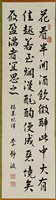 花看半開酒飲微醉此中大有
佳趣若至爛漫酕醄便成惡境矣
履盈滿者宜思之